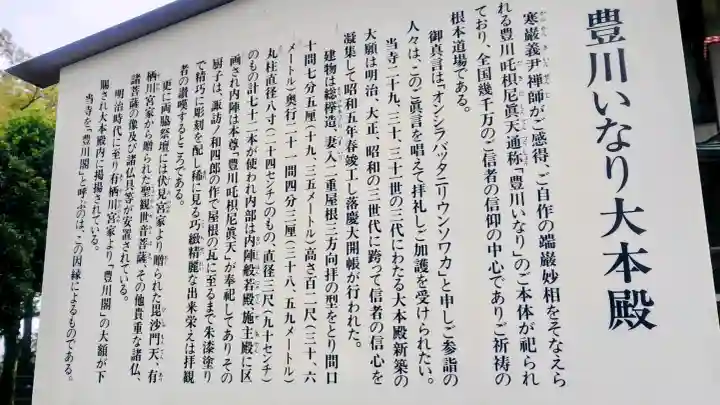 豊川いなり大本殿
寒巌義尹禅師がご感得、ご自作の端巌妙相をそなえら
れる豊川吒枳尼眞天通称「豊川いなり」のご本体が祀られ
ており、全国幾千万のご信者の信仰の中心でありご祈祷の
根本道場である。
御真言は「オンシラバッタニリウンソワカ」と申しご参詣の
人々は、このご眞言を唱えて拝礼しご加護を受けられたい。
当寺二十九、三十、三十一世の三代にわたる大本殿新築の
大願は明治、大正、昭和の三世代に跨って信者の信心を
凝集して昭和五年春竣工し落慶大開帳が行われた。
建物は総欅造、妻入二重屋根三方向拝の型をとり間口
十間七分五厘(十九、三五メートル)高さ百二尺(三十、六
メートル)奥行二十一間四分三厘(三十八、五九メートル)
丸柱直径八寸(二十四センチ)のもの、直径三尺(九十センチ)
のもの計七十二本が使われ内部は内陣般若殿施主殿に区
画され内陣は本尊「豊川吒枳尼眞天」が奉祀してありその
厨子は、諏訪ノ和四郎の作で屋根の瓦に至るまで朱漆塗り
で精巧に彫刻を配し稀に見る巧緻精麗な出来栄えは拝観
者の讃嘆するところである。
更に両脇祭壇には伏見宮家より贈られた毘沙門天、有
栖川宮家から贈られた聖観世音菩薩、その他貴重な諸仏、
諸菩薩の像及び諸仏具等が安置されている。
明治時代に至り有栖川宮家より「豊川閣」の大額が下
賜され大本殿内に掲揚されている。
当寺を「豊川閣」と呼ぶのは、この因縁によるものである。